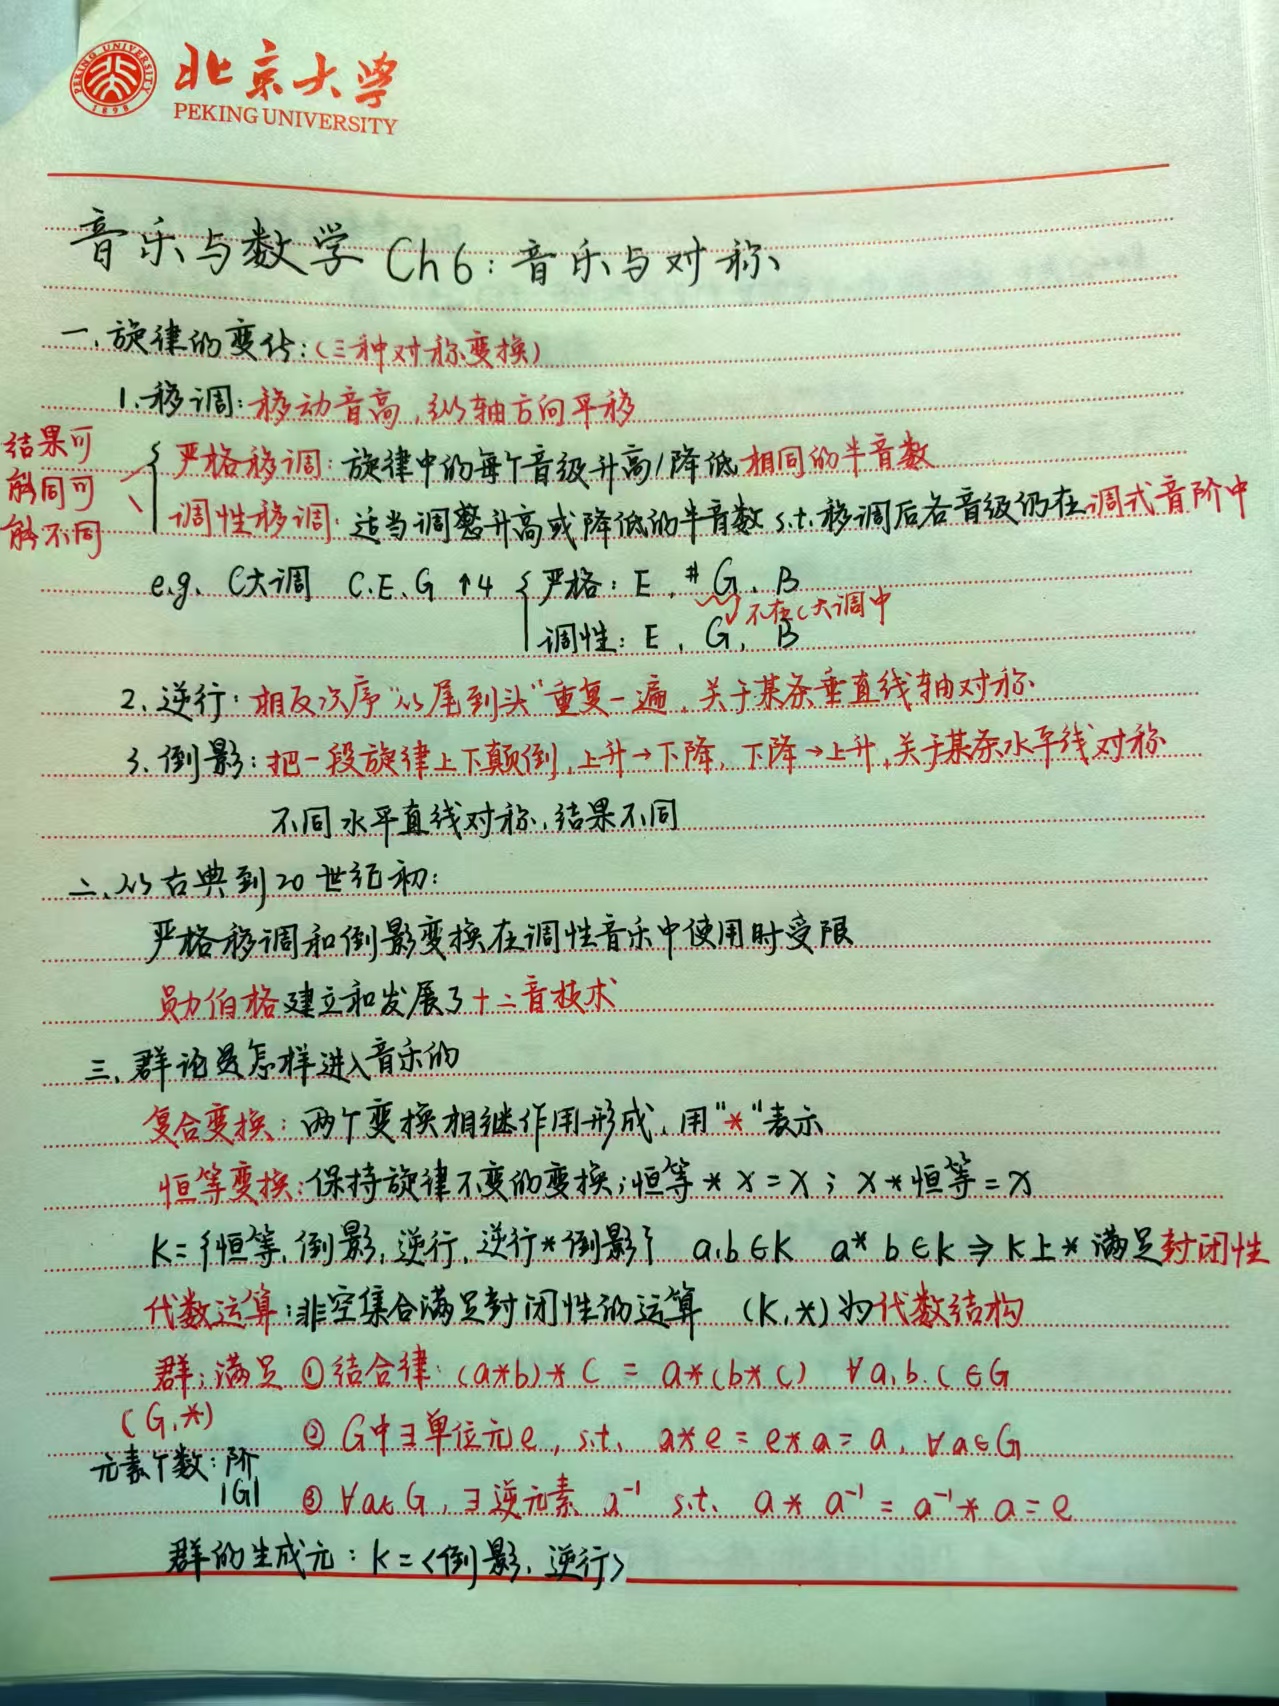 北京大学
PEKING UNIVERSITY
PEKING UNIVERSITY
1898
音乐与数学 Ch 6：音乐与对称
一、旋律的变化：（三种对称变换）
1、移调：移动音高，纵轴方向平移
结果可能同可能不同
严格移调：旋律中的每个音级升高/降低相同的半音数
调性移调：适当调整升高或降低的半音数 s.t. 移调后各音级仍在调式音阶中
e.g. C大调 C、E、G ↑4 { 严格：E、#G、B
不在C大调中
调性：E、G、B
2、逆行：相反次序“从尾到头”重复一遍，关于某条垂直线轴对称
3、倒影：把一段旋律上下颠倒，上升→下降，下降→上升，关于某条水平线对称
不同水平直线对称，结果不同
二、从古典到20世纪初：
严格移调和倒影变换在调性音乐中使用时受限
勋伯格建立和发展了十二音技术
三、群论是怎样进入音乐的
复合变换：两个变换相继作用形成，用“*”表示
恒等变换：保持旋律不变的变换；恒等 * x = x ； x * 恒等 = x
K = {恒等，倒影，逆行，逆行*倒影} a,b ∈ K a * b ∈ K ⇒ K上 * 满足封闭性
代数运算：非空集合满足封闭性的运算 (K,*) 为代数结构
群：满足 ① 结合律：(a*b)*c = a*(b*c) ∀a,b,c ∈ G
(G,*)
② G中∃单位元e，s.t. a*e = e*a = a，∀a∈G
元素个数：阶
|G|
③ ∀a∈G，∃逆元素 a⁻¹ s.t. a * a⁻¹ = a⁻¹ * a = e
群的生成元：K = <倒影，逆行>